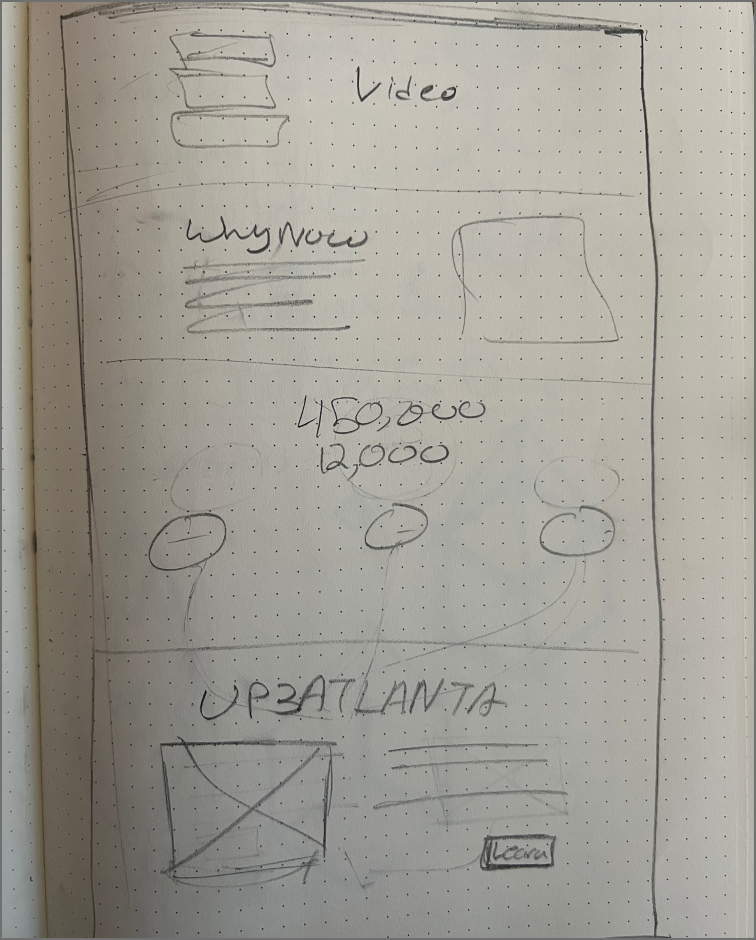 Video
Why Now
450,000
12,000
UP3ATLANTA
Learn